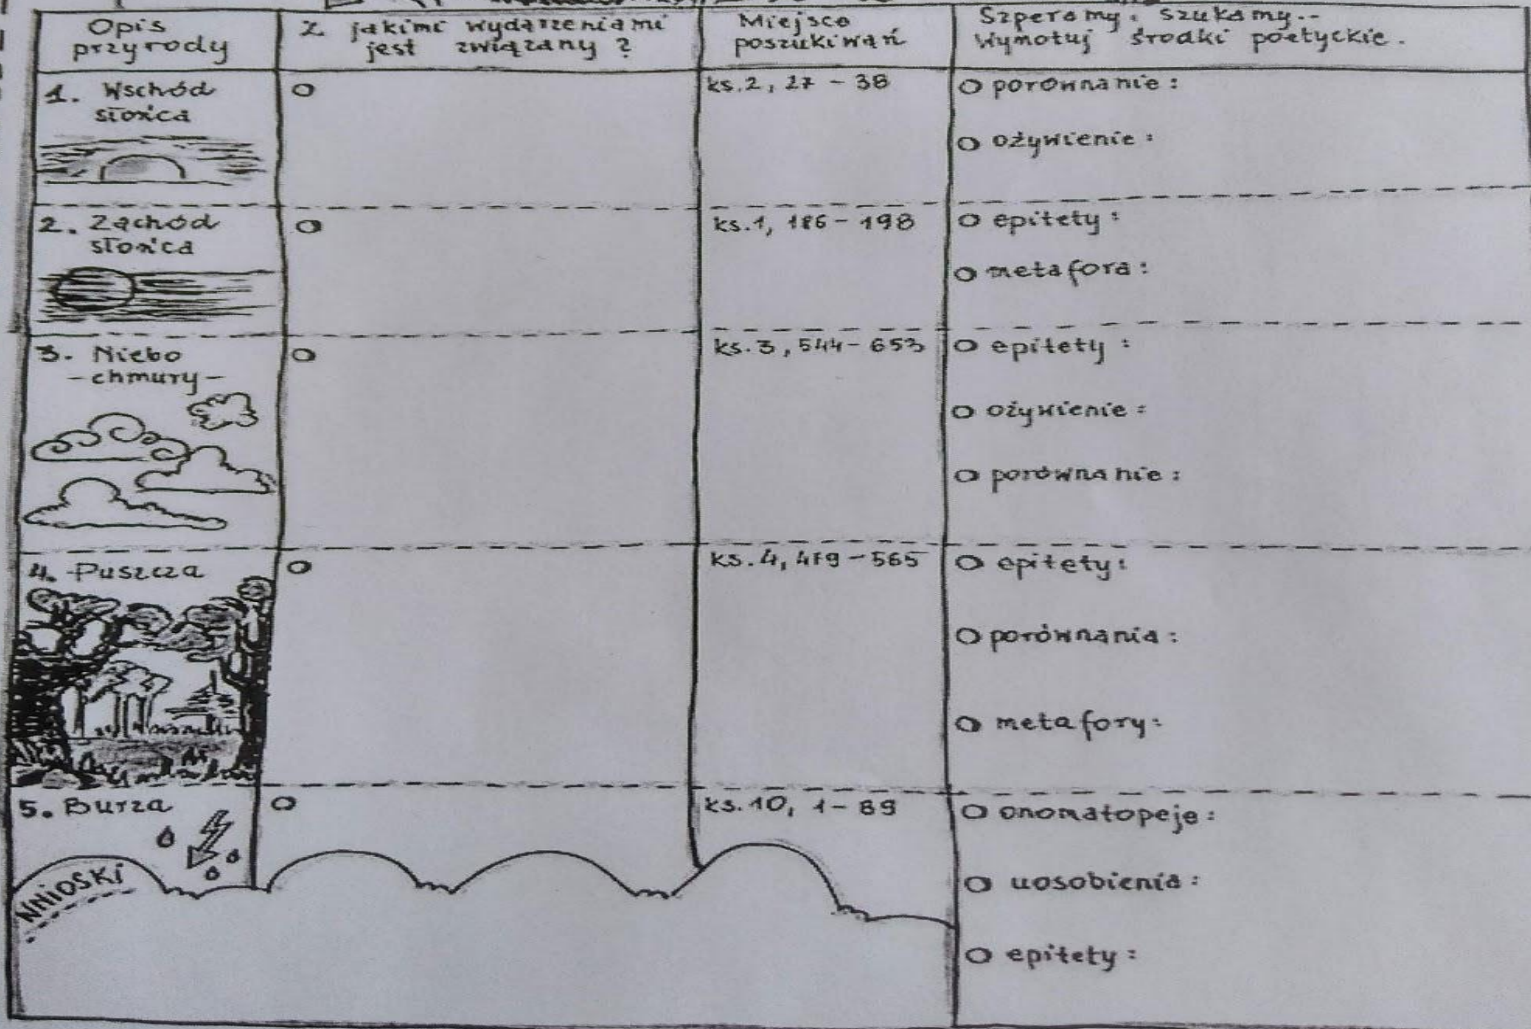 Opis
przyrody
Z jakimi wydarzeniami
jest związany ?
Miejsce
poszukiwań
Szperamy, szukamy..
Wynotuj środki poetyckie.
1. Wschód
słońca
ks.2, 27 - 38
porównanie :
ożywienie :
2. Zachód
słońca
ks.1, 186 - 198
epitety :
metafora :
3. Niebo
- chmury -
ks.3, 544 - 653
epitety :
ożywienie :
porównanie :
4. Puszcza
ks.4, 479 - 565
epitety :
porównania :
metafory :
5. Burza
ks.10, 1 - 89
onomatopeje :
uosobienia :
epitety :
WNIOSKI